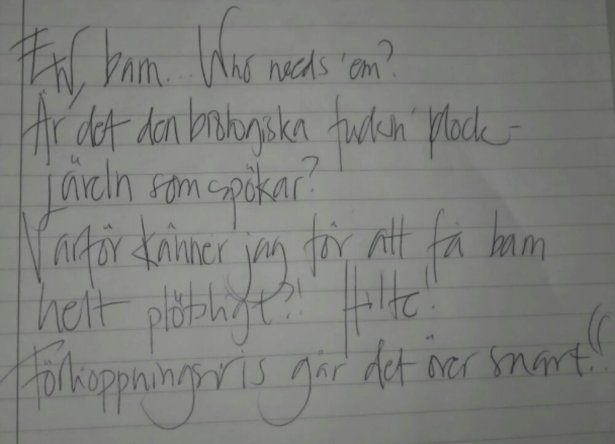 EW, barn... Who needs 'em?
Är det den biologiska fuckin' klock-
järeln som spökar?
Varför känner jag för att få barn
helt plötsligt?!
Förhoppningsvis går det över snart!!